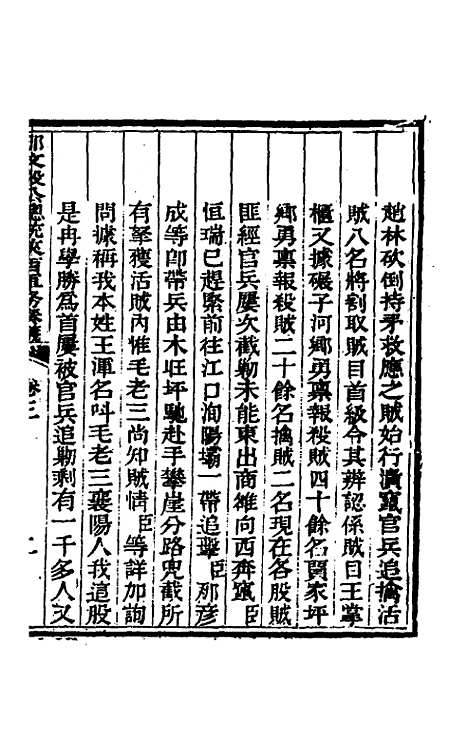 趙林砍倒持矛救應之賊始行潰竄官兵追擒活
賊八名將割取賊目首級令其辨認係賊目王掌
櫃又據碾子河鄉勇稟報殺賊四十餘名関家坪
鄉勇稟報殺賊二十餘名擒賊二名現在各股賊
匪經官兵屢次截勦未能東出商雒向西奔竄臣
恒瑞已趕緊前往江口洵陽壩一帶追擊臣那彥
成等卽帶兵由木旺坪馳赴手攀崖分路兜截所
有拏獲活賊內惟毛老三尚知賊情臣等詳加詢
問據稱我本姓王渾名呌毛老三襄陽人我這股
是冉學勝爲首屢被官兵追勦剩有一千多人又
那文毅公總統陝甘軍務奏議 卷三